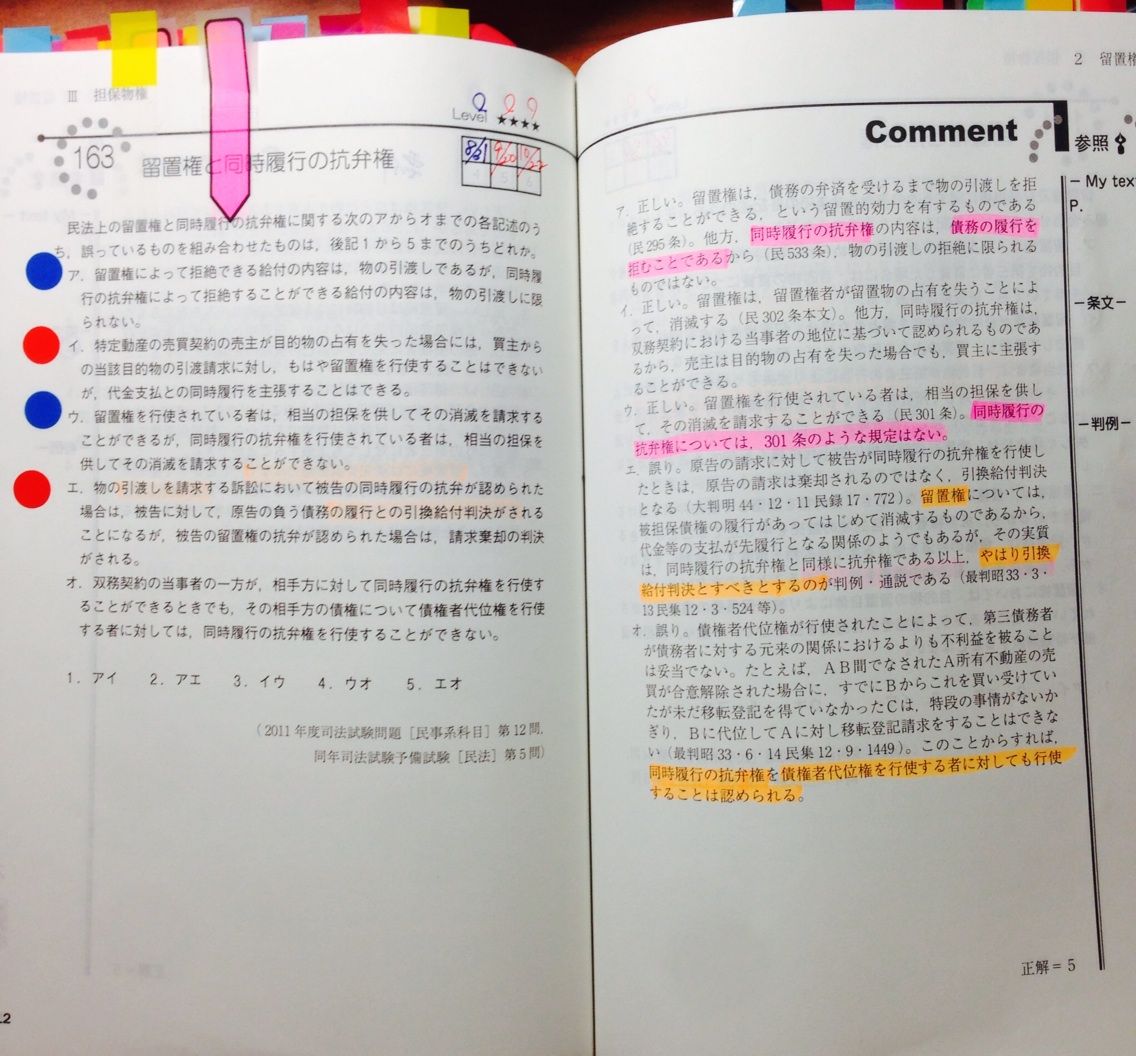 Ⅲ 担保物権
Level ★★★★
8/31 9/20 10/22
4 5 6
163 留置権と同時履行の抗弁権
民法上の留置権と同時履行の抗弁権に関する次のアからオまでの各記述のう
ち，誤っているものを組み合わせたものは，後記1から5までのうちどれか。
ア．留置権によって拒絶できる給付の内容は，物の引渡しであるが，同時履
行の抗弁権によって拒絶することができる給付の内容は，物の引渡しに限
られない。
イ．特定動産の売買契約の売主が目的物の占有を失った場合には，買主から
の当該目的物の引渡請求に対し，もはや留置権を行使することはできない
が，代金支払との同時履行を主張することはできる。
ウ．留置権を行使されている者は，相当の担保を供してその消滅を請求する
ことができるが，同時履行の抗弁権を行使されている者は，相当の担保を
供してその消滅を請求することができない。
エ．物の引渡しを請求する訴訟において被告の同時履行の抗弁が認められた
場合は，被告に対して，原告の負う債務の履行との引換給付判決がされる
ことになるが，被告の留置権の抗弁が認められた場合は，請求棄却の判決
がされる。
オ．双務契約の当事者の一方が，相手方に対して同時履行の抗弁権を行使す
ることができるときでも，その相手方の債権について債権者代位権を行使
する者に対しては，同時履行の抗弁権を行使することができない。
1．アイ 2．アエ 3．イウ 4．ウオ 5．エオ
（2011年度司法試験問題［民事系科目］第12問，
同年司法試験予備試験［民法］第5問）
2 留置権
Comment
参照
ア．正しい。留置権は，債務の弁済を受けるまで物の引渡しを拒
絶することができる，という留置的効力を有するものである
（民295条）。他方，同時履行の抗弁権の内容は，債務の履行を
拒むことであるから（民533条），物の引渡しの拒絶に限られる
ものではない。
イ．正しい。留置権は，留置権者が留置物の占有を失うことによ
って，消滅する（民302条本文）。他方，同時履行の抗弁権は，
双務契約における当事者の地位に基づいて認められるものであ
るから，売主は目的物の占有を失った場合でも，買主に主張す
ることができる。
ウ．正しい。留置権を行使されている者は，相当の担保を供し
て，その消滅を請求することができる（民301条）。同時履行の
抗弁権については，301条のような規定はない。
エ．誤り。原告の請求に対して被告が同時履行の抗弁権を行使し
たときは，原告の請求は棄却されるのではなく，引換給付判決
となる（大判明44・12・11民録17・772）。留置権については，
被担保債権の履行があってはじめて消滅するものであるから，
代金等の支払が先履行となる関係のようでもあるが，その実質
は，同時履行の抗弁権と同様に抗弁権である以上，やはり引換
給付判決とすべきとするのが判例・通説である（最判昭33・3・
13民集12・3・524等）。
オ．誤り。債権者代位権が行使されたことによって，第三債務者
が債務者に対する元来の関係におけるよりも不利益を被ること
は妥当でない。たとえば，AB間でなされたA所有不動産の売
買が合意解除された場合に，すでにBからこれを買い受けてい
たが未だ移転登記を得ていなかったCは，特段の事情がないか
ぎり，Bに代位してAに対し移転登記請求をすることはできな
い（最判昭33・6・14民集12・9・1449）。このことからすれば，
同時履行の抗弁権を債権者代位権を行使する者に対しても行使
することは認められる。
正解＝5
－My tex
P.
－条文－
－判例－